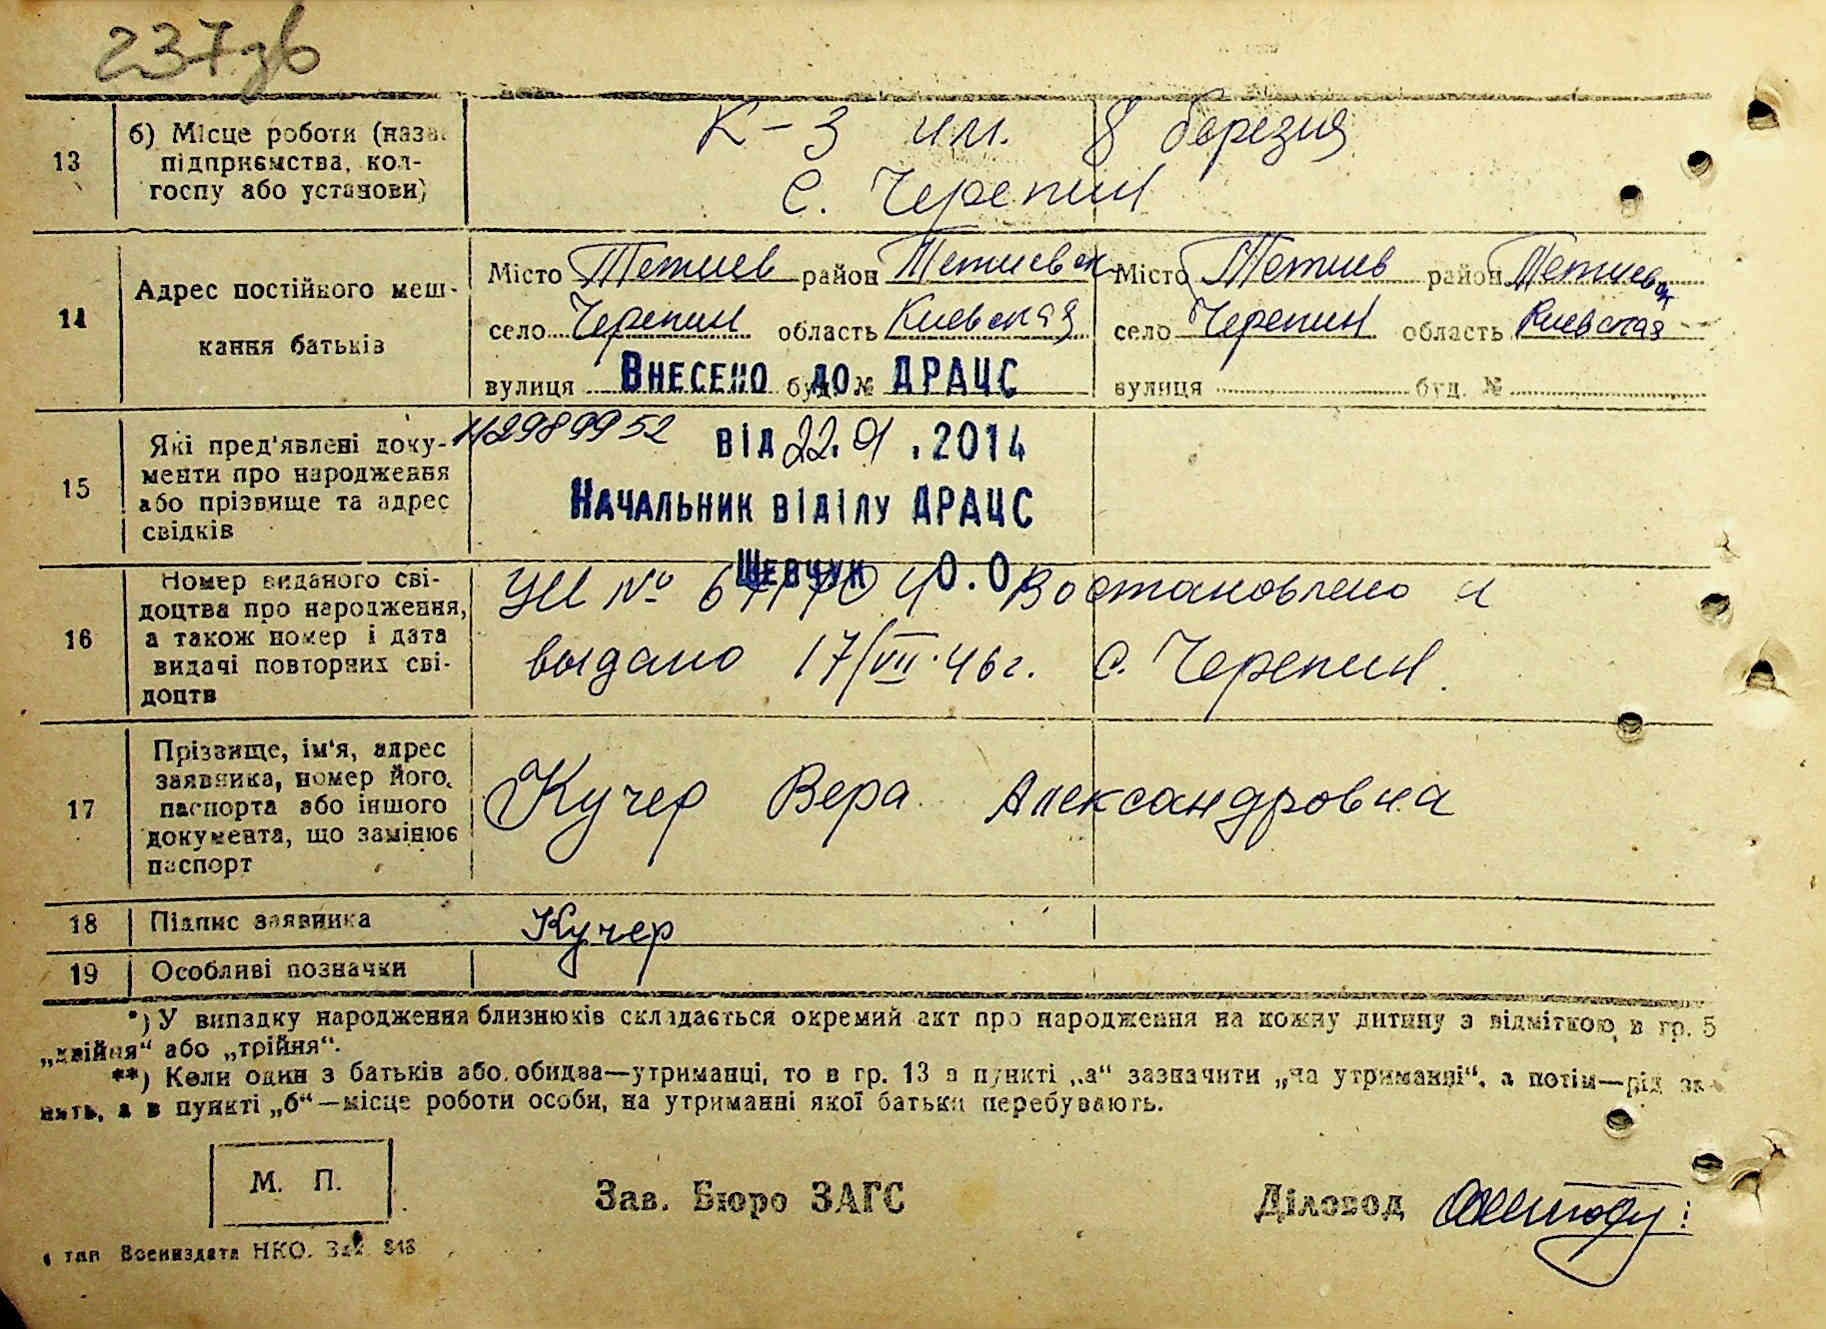 237зв
13 б) Місце роботи (назва підприємства, кол-
госпу або установи)
К-З им. 8 березня
с. Черепин
14 Адрес постійного меш-
кання батьків
Місто Тетиев район Тетиевск Місто Тетиев район Тетиевск
село Черепин область Киевская село Черепин область Киевская
вулиця буд. № вулиця буд. №
Внесено до ДРАЦС
15 Які пред'явлені доку-
менти про народження
або прізвище та адрес
свідків
від 22.01.2014
Начальник відділу ДРАЦС
Шевчук О.О.
16 Номер виданого сві-
доцтва про народження,
а також номер і дата
видачі повторних сві-
доцтв
№ Востановлено и
выдано 17/VII-46г. с. Черепин.
17 Прізвище, ім'я, адрес
заявника, номер його
паспорта або іншого
документа, що замінює
паспорт
Кучер Вера Александровна
18 Підпис заявника Кучер
19 Особливі позначки
*) У випадку народження близнюків складається окремий акт про народження на кожну дитину з відміткою в гр. 5
„двійня“ або „трійня“.
**) Коли один з батьків або обидва—утриманці, то в гр. 13 в пункті „а“ зазначити „на утриманні“, а потім—рід за-
нять, а в пункті „б“—місце роботи особи, на утриманні якої батьки перебувають.
М. П. Зав. Бюро ЗАГС Діловод
тип Воениздата НКО. Зак